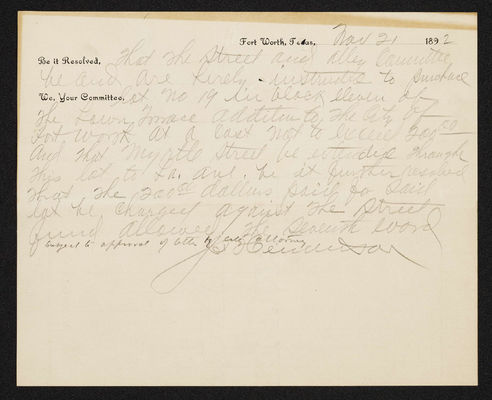 Fort Worth, Texas, Nov 21 1892
Be it Resolved, That the Street and Alley Committee
be and are hereby instructed to purchase
We, Your Committee, Lot No 19 in block eleven of
the Lawn Terrace addition to the City of
Fort Worth at a cost not to exceed 200.00
and that Myrtle Street be extended through
this lot to La. ave. be it further resolved
that the 200.00 dollars paid for said
lot be charged against the Street
fund allowed the Seventh Ward
Subject to approval of title by City Attorney
Henderson